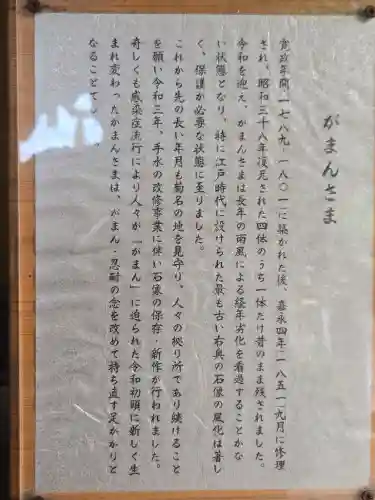 がまんさま
寛政年間(一七八九-一八〇一)に築かれた後、嘉永四年(一八五一)九月に修理
され、昭和三十八年復元された四体のうち一体だけ昔のまま残されました。
令和を迎え、がまんさまは長年の雨風による経年劣化を看過することができな
い状態となり、特に江戸時代に設けられた最も古い右奥の石像の風化は著し
く、保護が必要な状態に至りました。
これから先の長い年月も菊名の地を見守り、人々の拠り所であり続けること
を願い令和三年、手水の改修事業に伴い石像の保存・新作が行われました。
奇しくも感染症流行により人々が「がまん」に迫られた令和初頭に新しく生
まれ変わったがまんさまは、がまん・忍耐の念を改めて持ち直す足がかりと
なることでし